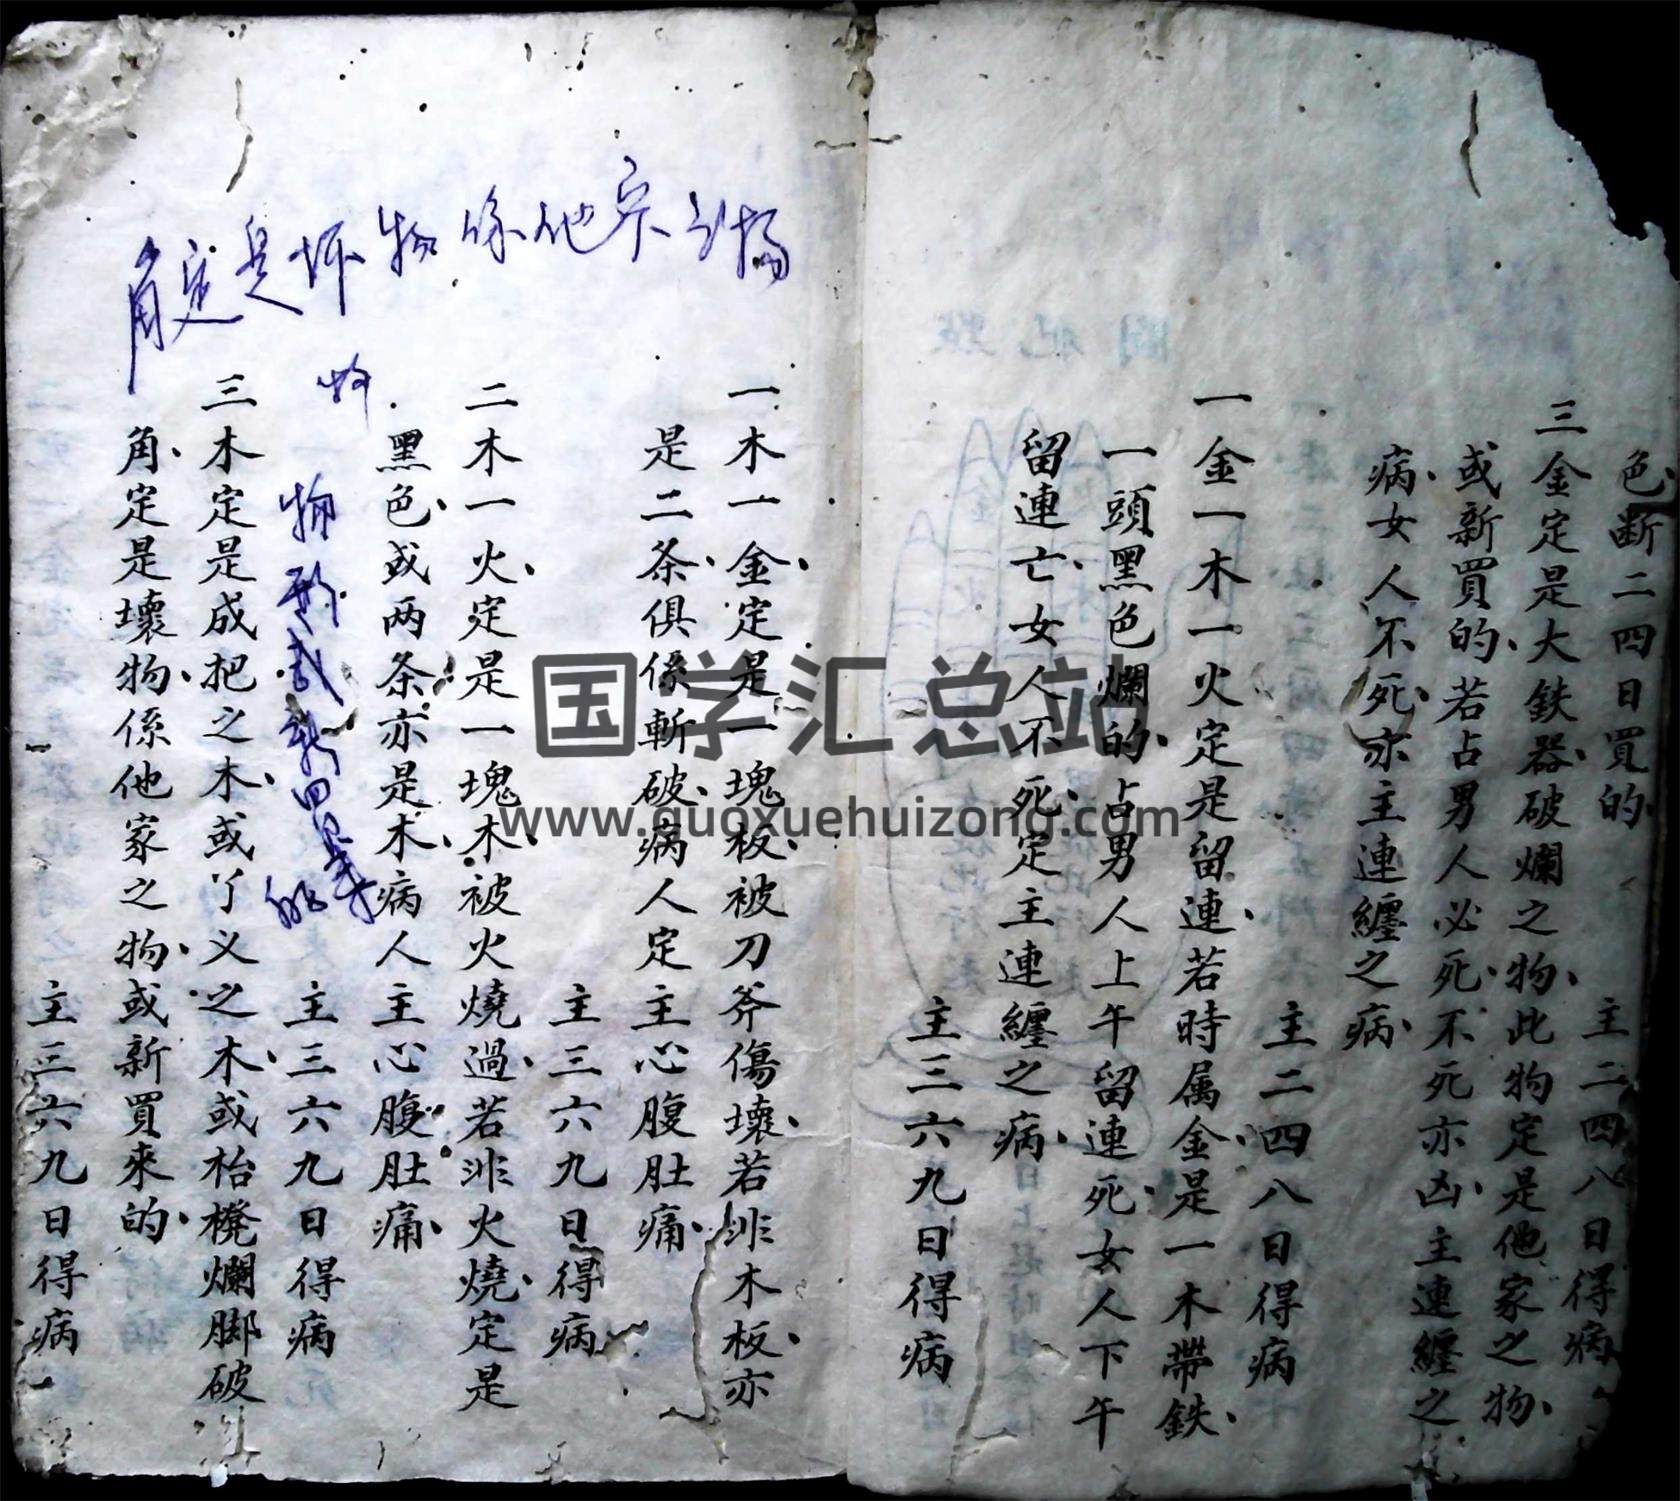 色、断二四日買的、
主二四八日得病
三金定是大鉄器、破爛之物、此物定是他家之物、
或新買的、若占男人必死、不死亦凶、主連纏之
病、女人不死、亦主連纏之病、
主二四八日得病
一金一木一火定是留連、若時属金、是一木帶鉄、
一頭黑色爛的、占男人上午留連死、女人下午
留連亡、女人不死、定主連纏之病、
主三六九日得病
一木一金、定是一塊板、被刀斧傷壞、若非木板、亦
是二条、俱係斬破、病人定主心腹肚痛、
主三六九日得病
二木一火、定是一塊木、被火燒過、若非火燒、定是
黑色、或两条亦是木、病人主心腹肚痛、
主三六九日得病
三木定是成把之木、或丫义之木、或枱櫈爛脚破
角、定是壞物、係他家之物、或新買來的、
主三六九日得病
角定是坏物係他
物
国学汇总站
www.guoxuehuizong.com